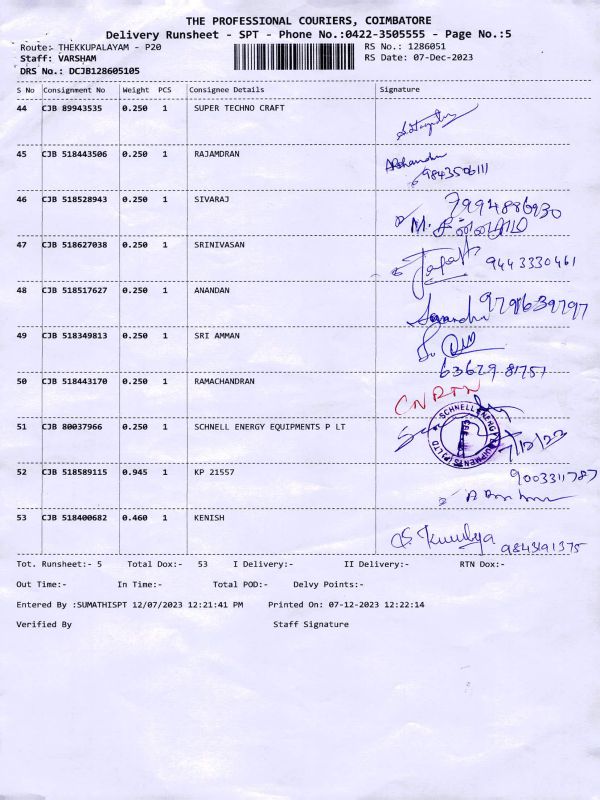 THE PROFESSIONAL COURIERS, COIMBATORE
Delivery Runsheet - SPT - Phone No.:0422-3505555 - Page No.:5
Route:- THEKKUPALAYAM - P20 RS No.: 1286051
Staff: VARSHAM RS Date: 07-Dec-2023
DRS No.: DCJB128605105
S No Consignment No Weight PCS Consignee Details Signature
44 CJB 89943535 0.250 1 SUPER TECHNO CRAFT
45 CJB 518443506 0.250 1 RAJAMDRAN
9843506111
46 CJB 518528943 0.250 1 SIVARAJ 7994886930
M.
47 CJB 518627038 0.250 1 SRINIVASAN 9443330461
48 CJB 518517627 0.250 1 ANANDAN 9798639797
49 CJB 518349813 0.250 1 SRI AMMAN
63629 81751
50 CJB 518443170 0.250 1 RAMACHANDRAN
CNRTN
51 CJB 80037966 0.250 1 SCHNELL ENERGY EQUIPMENTS P LT
SCHNELL ENERGY EQUIPMENTS (P) LTD
7/12/23
52 CJB 518589115 0.945 1 KP 21557 9003311787
53 CJB 518400682 0.460 1 KENISH
9843191375
Tot. Runsheet:- 5 Total Dox:- 53 I Delivery:- II Delivery:- RTN Dox:-
Out Time:- In Time:- Total POD:- Delvy Points:-
Entered By :SUMATHISPT 12/07/2023 12:21:41 PM Printed On: 07-12-2023 12:22:14
Verified By Staff Signature